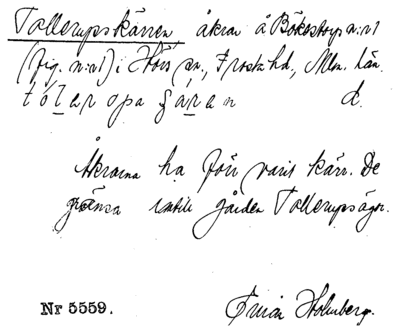 Tollerupskärren åkrar å Bökestorp n:r 1
(fig. n:r 1) i Hörs sn., Frosta hd., Mlm. län.
tólaropaʃäran d.
Åkrarna ha förr varit kärr. De
gränsa intill gården Tollerups ägor.
Nr 5559.
Holmberg.